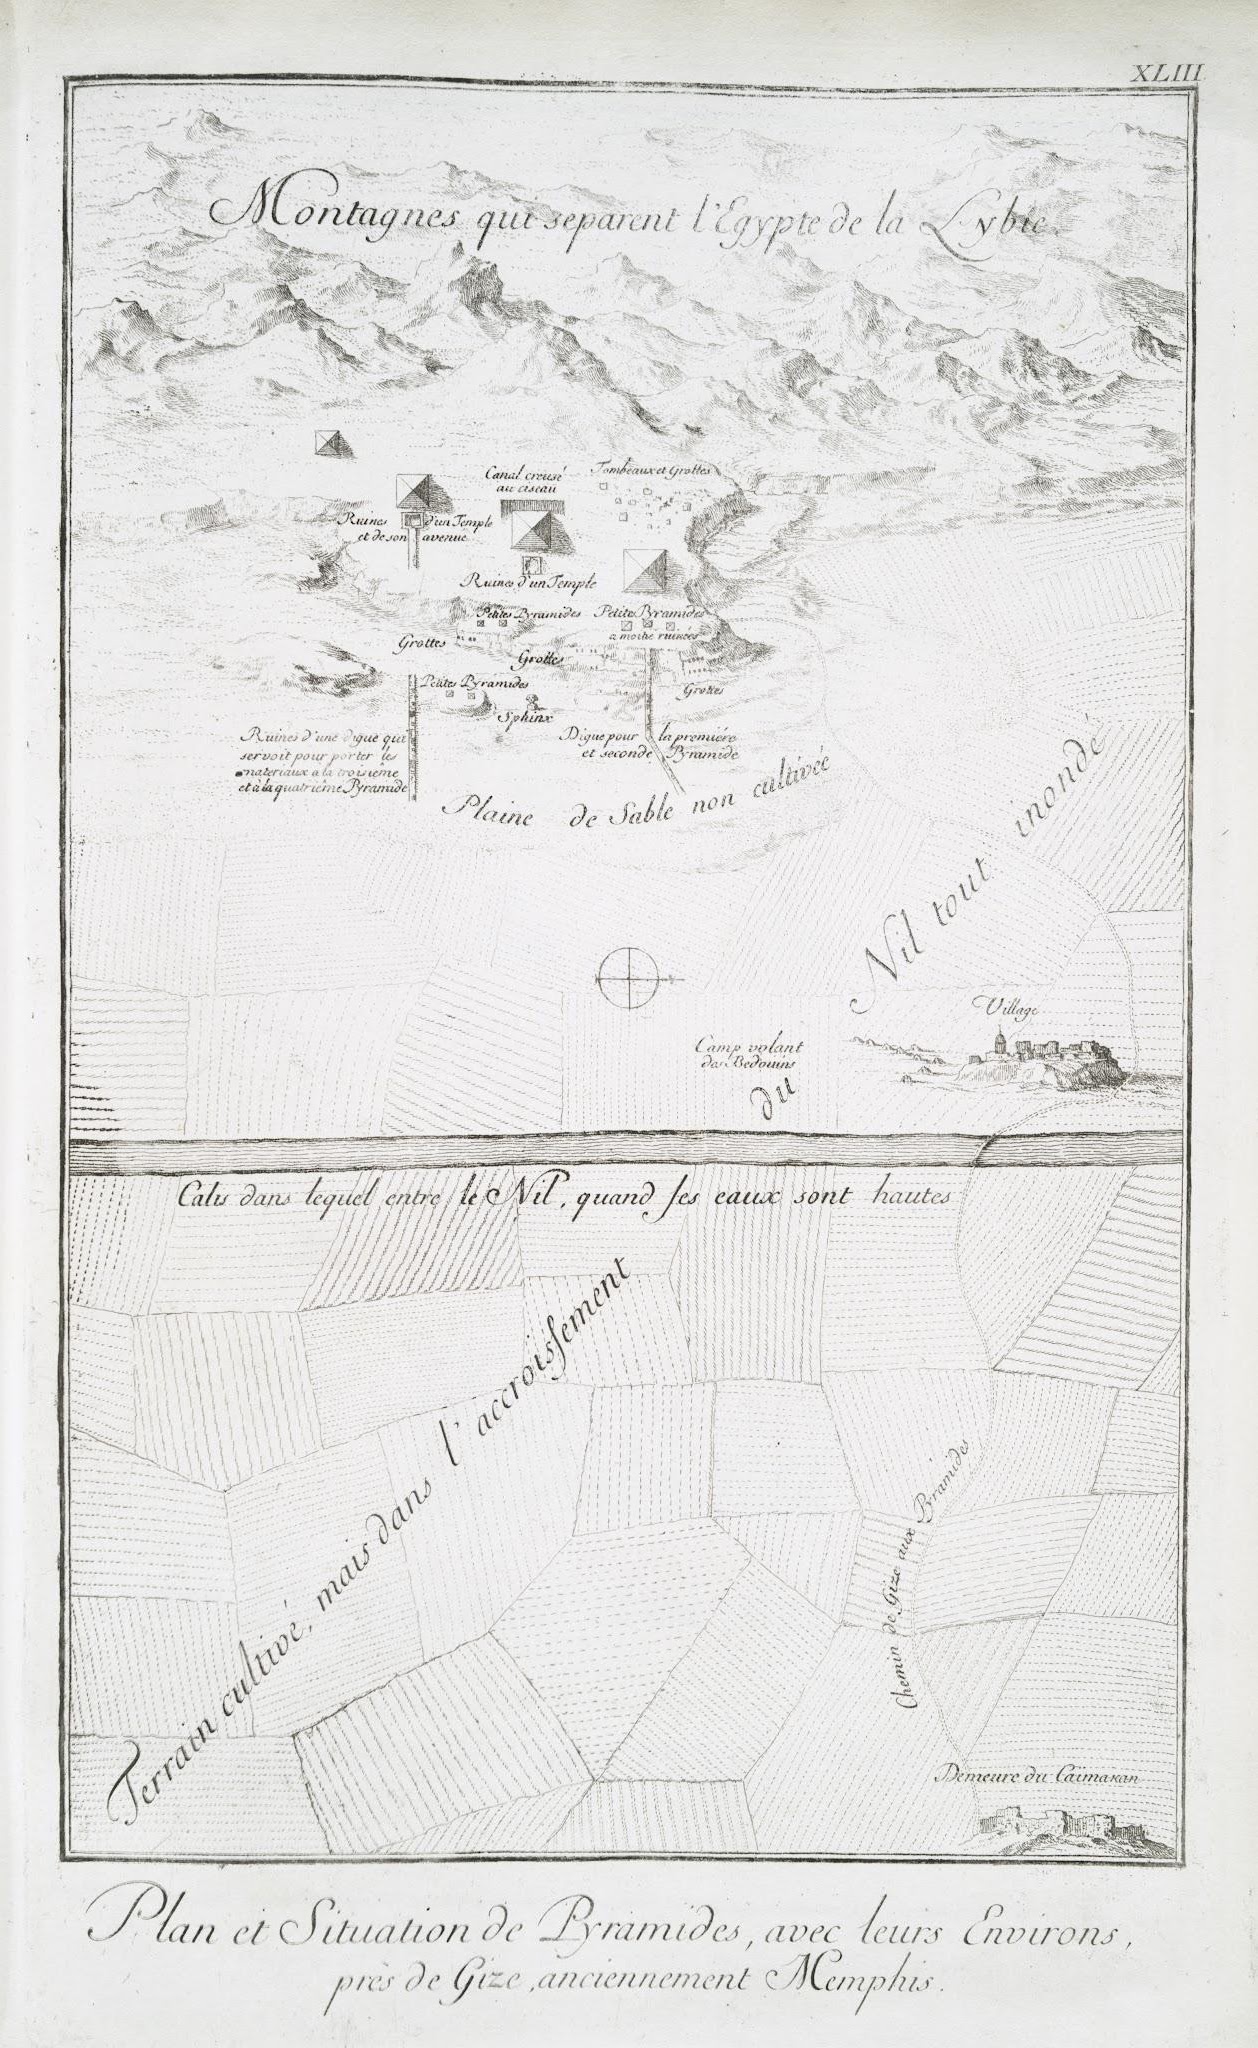 XLIII
Montagnes qui separent l'Egypte de la Lybie.
Canal creusé
au ciseau
Tombeaux et Grottes
Ruines d'un Temple
et de son avenue
Ruines d'un Temple
Petites Pyramides
Petites Pyramides
a moitie ruinées
Grottes
Grottes
Grottes
Petites Pyramides
Sphinx
Ruines d'une digue qui
servoit pour porter les
materiaux a la troisième
et à la quatrième Pyramide
Digue pour la premiére
et seconde Pyramide
Plaine de Sable non cultivée
Village
Camp volant
des Bedouins
Calis dans lequel entre le Nil, quand ses eaux sont hautes
Terrain cultivé, mais dans l'accroissement du Nil tout inondé
Chemin de Gize aux Piramides
Demeure du Caïmakan
Plan et Situation de Pyramides, avec leurs Environs,
près de Gize, anciennement Memphis.